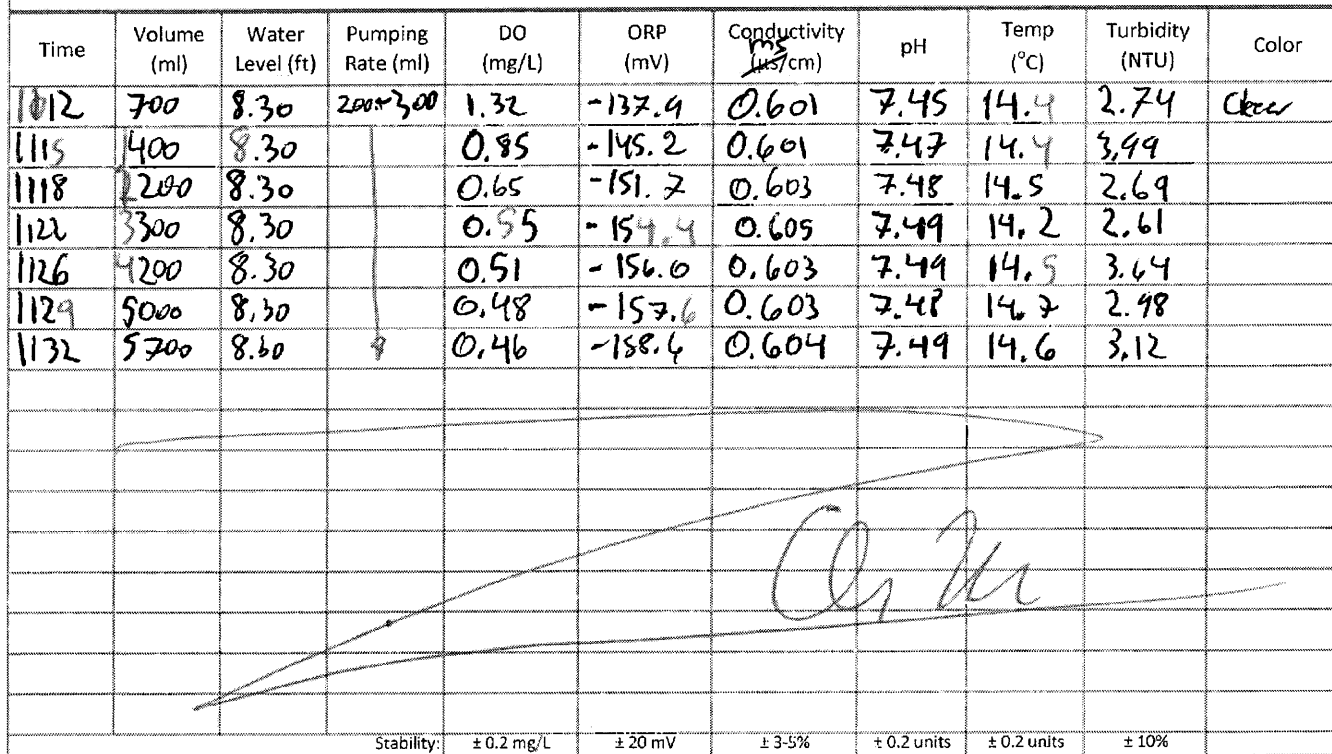 Time Volume (ml) Water Level (ft) Pumping Rate (ml) DO (mg/L) ORP (mV) Conductivity ms (µs/cm) pH Temp (°C) Turbidity (NTU) Color
700 8.30 200-300 1.32 -137.9 0.601 7.45 14.4 2.74 Clear
1115 1400 8.30 0.85 -145.2 0.601 7.47 14.4 3.99
1118 2200 8.30 0.65 -151.7 0.603 7.48 14.5 2.69
1122 3300 8.30 0.55 -154.4 0.605 7.49 14.2 2.61
1126 4200 8.30 0.51 -156.0 0.603 7.49 14.5 3.64
1129 5000 8.30 0.48 -157.6 0.603 7.48 14.7 2.98
1132 5700 0.46 -158.6 0.604 7.49 14.6 3.12
Stability: ± 0.2 mg/L ± 20 mV ± 3-5% ± 0.2 units ± 0.2 units ± 10%